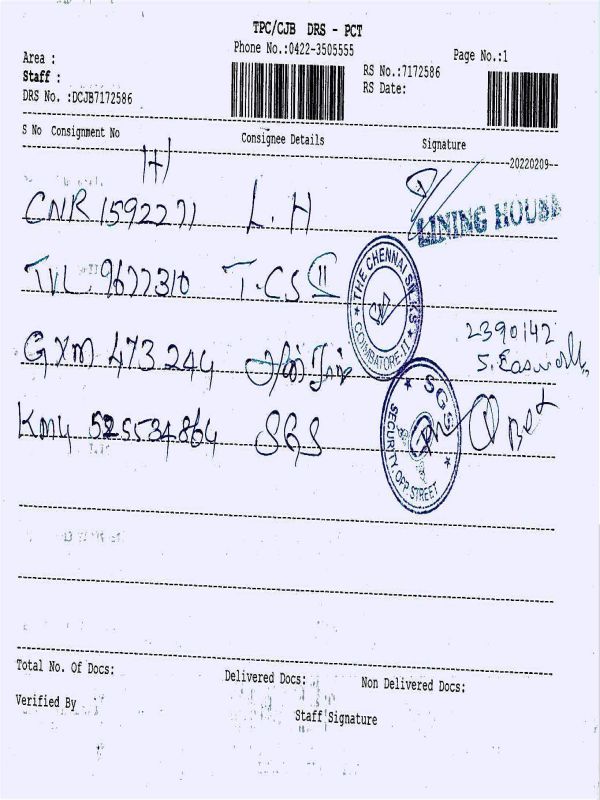 TPC/CJB DRS - PCT
Phone No.:0422-3505555
Page No.:1
Area :
Staff :
RS No.:7172586
DRS No. :DCJB7172586
RS Date:
S No Consignment No Consignee Details Signature
20220209
CNR 1592271 L.H
LINING HOUSE
TVL 9677310 T.CS II
THE CHENNAI SILKS
COIMBATORE-1
2390142
GXM 473244
S. Easwor
KMU 525534864 SGS
SGS
SECURITY, OPP. STREET
Total No. Of Docs: Delivered Docs: Non Delivered Docs:
Verified By
Staff Signature